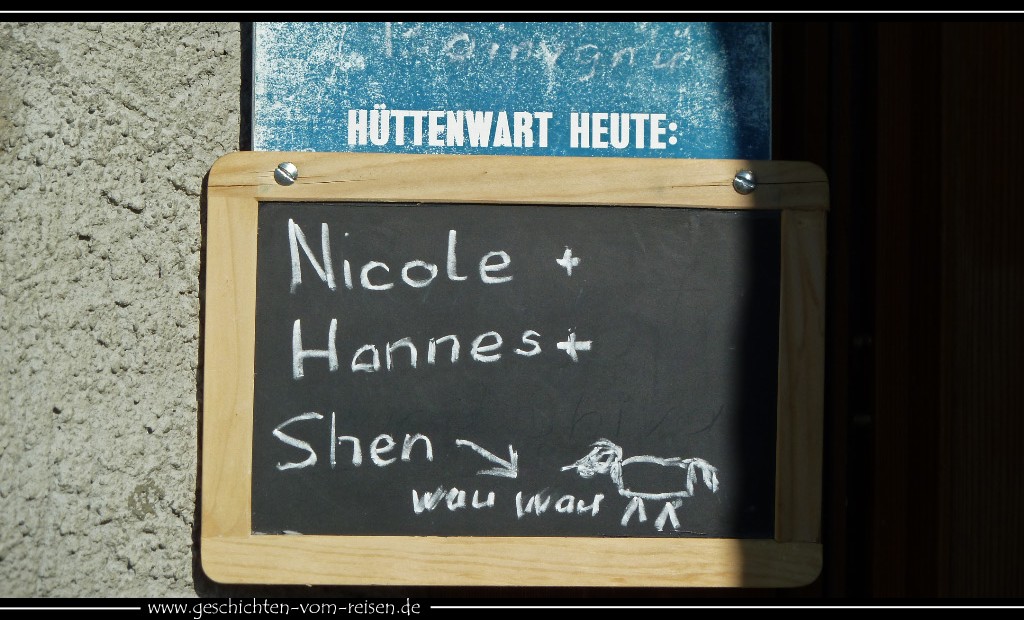 HÜTTENWART HEUTE:
Nicole +
Hannes +
Shen
wau wau
www.geschichten-vom-reisen.de